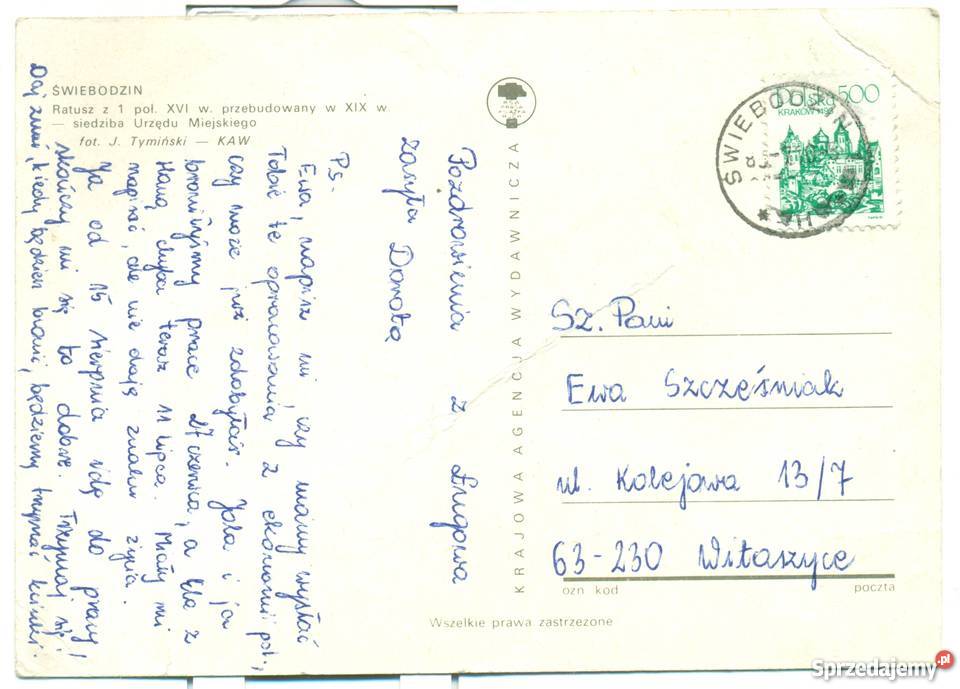 ŚWIEBODZIN
Ratusz z 1 poł. XVI w. przebudowany w XIX w.
— siedziba Urzędu Miejskiego
fot. J. Tymiński — KAW
Pozdrowienia z Ługowa
zasyła Dorota
PS.
Ewa, napisz mi, czy mamy wysłać
Tobie te opracowania z ekonomii pol.,
czy może już zdobyłaś. Jola i ja
broniłyśmy prace 27 czerwca, a Ela z
Haną chyba teraz 11 lipca. Miały mi
napisać, ale nie dają znaku życia.
Ja od 15 sierpnia idę do pracy!
skończy mi się to dobre. Trzymaj się!
Daj znać, kiedy będziesz bronić, będziemy trzymać kciuki.
KRAJOWA AGENCJA WYDAWNICZA
RSW PRASA KSIĄŻKA RUCH
POLSKA 500
KRAKÓW
ŚWIEBODZIN
Sz. Pani
Ewa Szcześniak
ul. Kolejowa 13/7
63-230 Witaszyce
ozn kod
poczta
Wszelkie prawa zastrzeżone
Sprzedajemy.pl